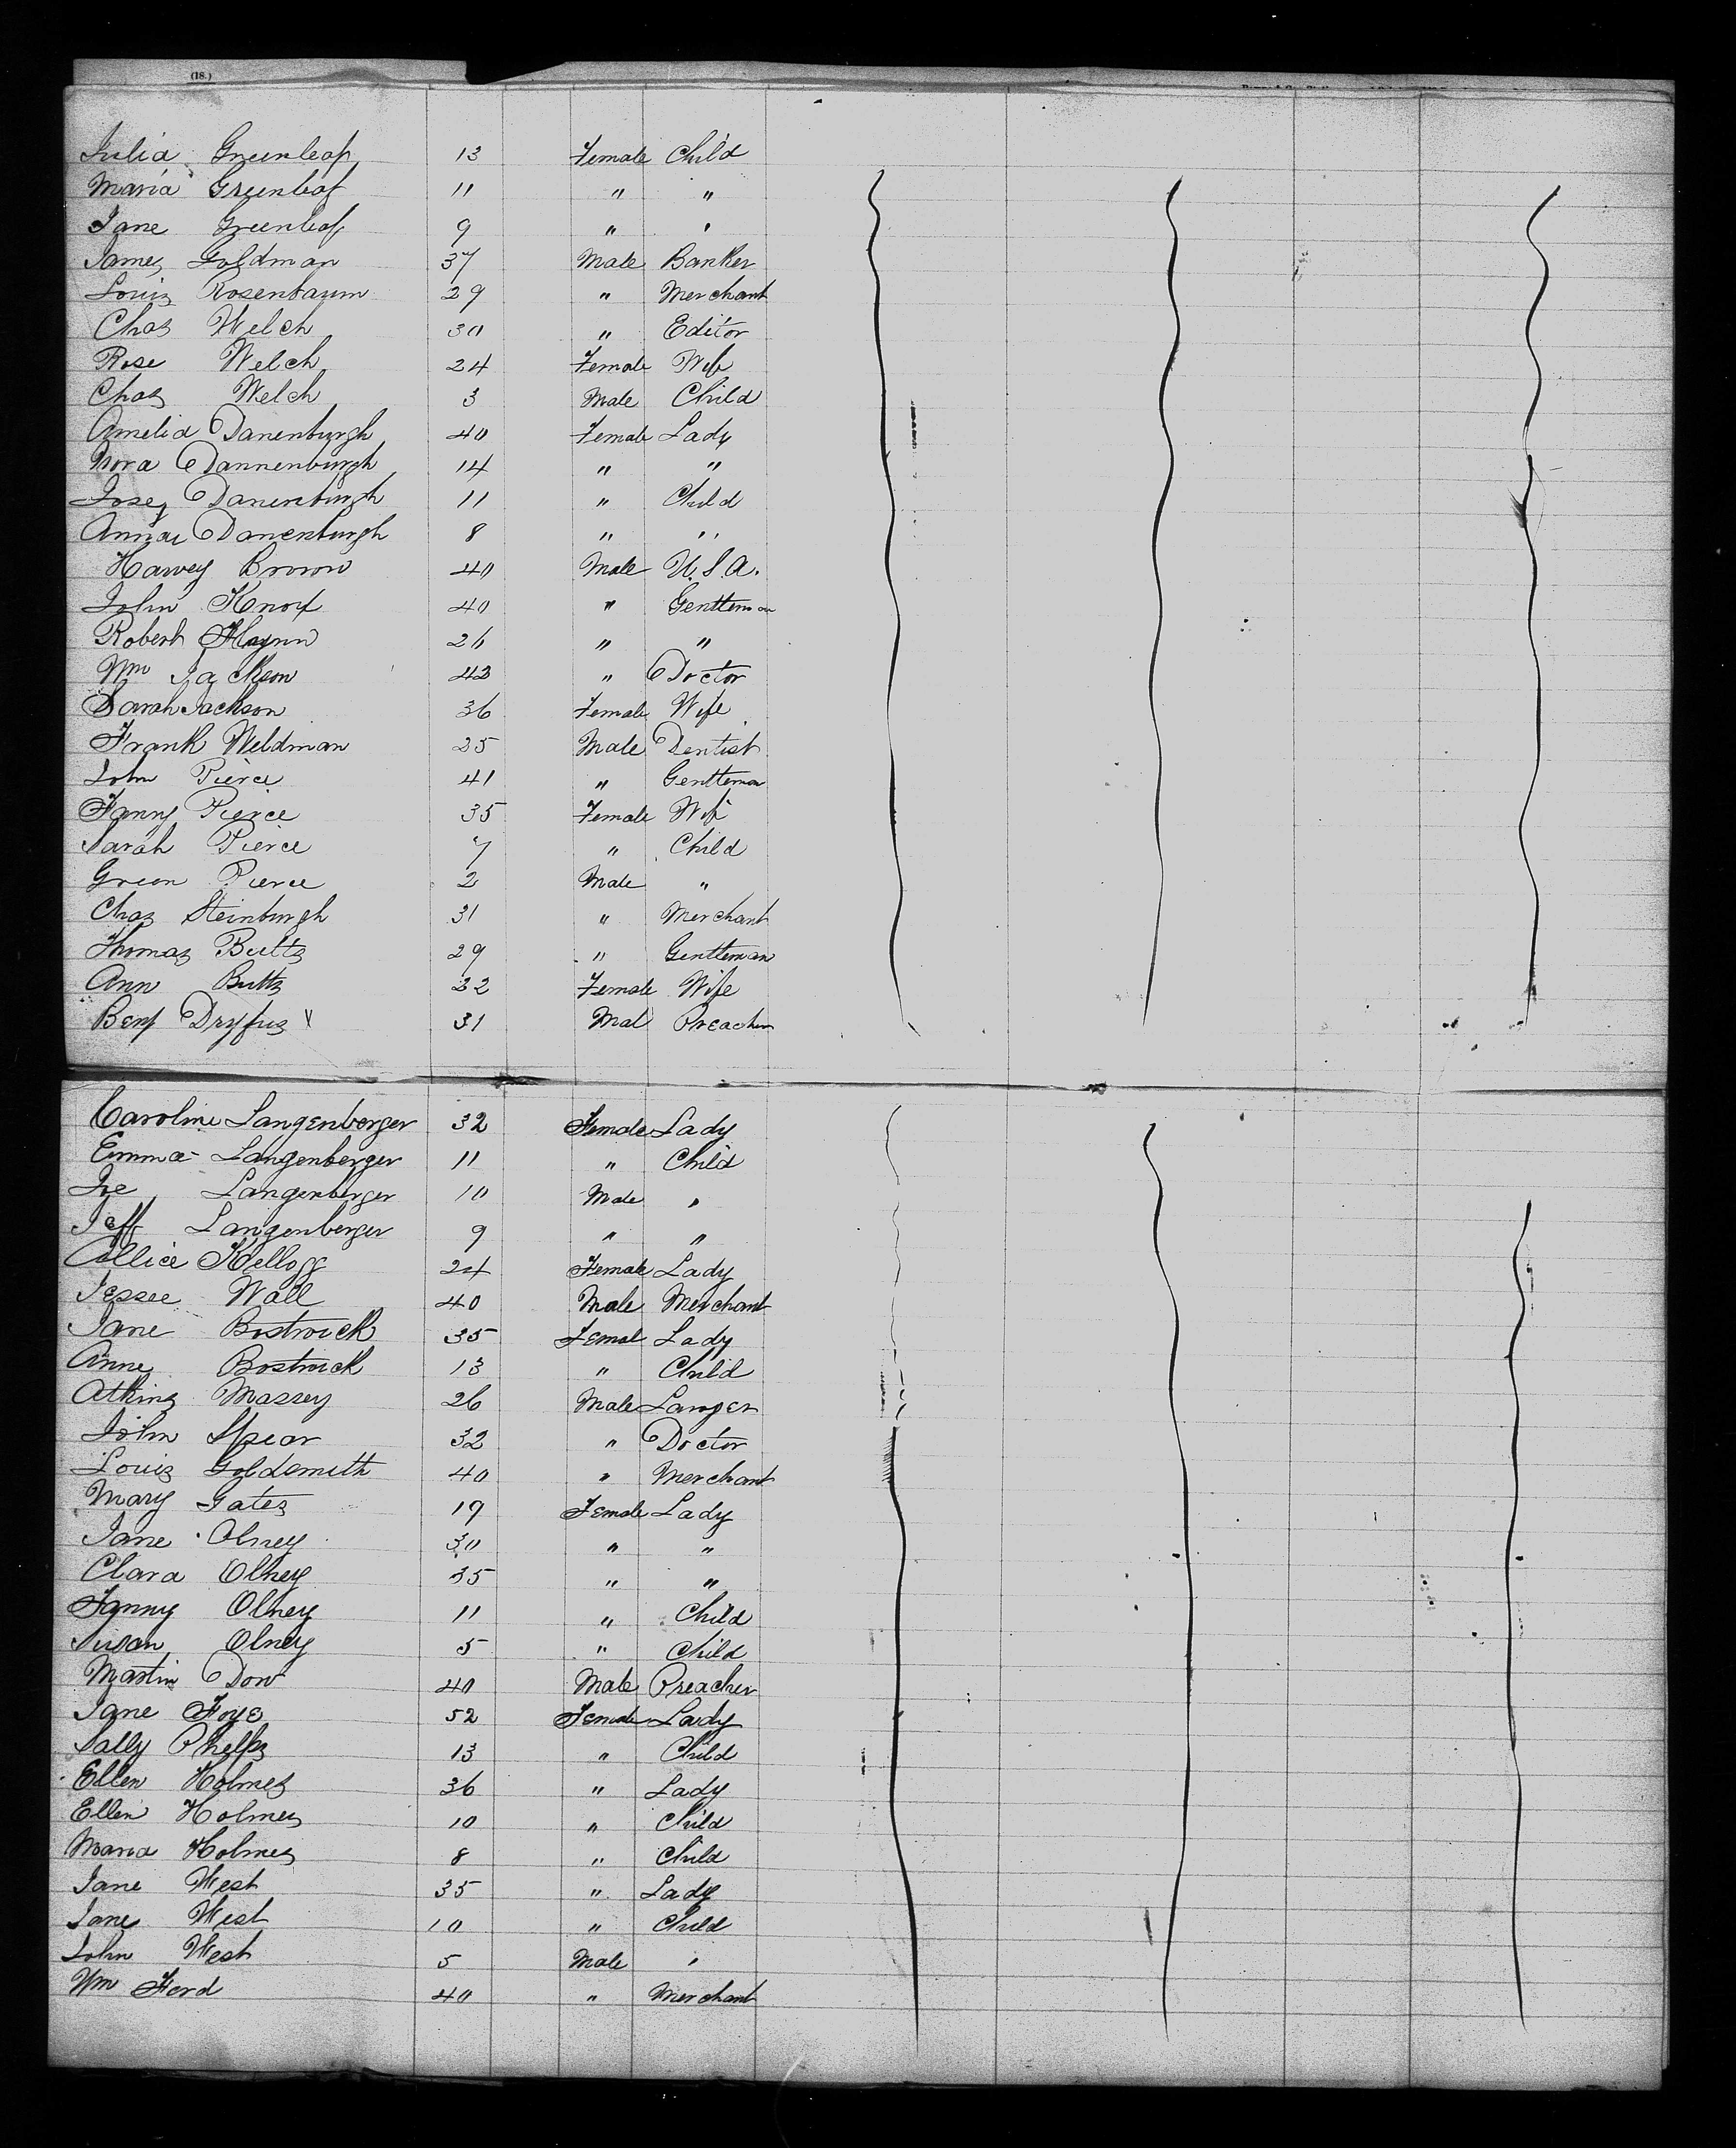 (18.)
Julia Greenleaf 13 Female Child
Maria Greenleaf 11 " "
Jane Greenleaf 9 " "
James Goldman 37 Male Banker
Louis Rosenbaum 29 " Merchant
Chas Welch 30 " Editor
Rose Welch 24 Female Wife
Chas Welch 3 Male Child
Amelia Danenburgh 40 Female Lady
Nora Dannenburgh 14 " "
Josey Danenburgh 11 " Child
Danenburgh 8 " "
Harvey Brown 40 Male U.S.A.
John Knox 40 " Gentleman
Robert 26 " "
Wm Jackson 42 " Doctor
Sarah Jackson 36 Female Wife
Frank Weldman 25 Male Dentist
John Pierce 41 " Gentleman
Fanny Pierce 35 Female Wife
Sarah Pierce 7 " Child
Pierce 2 Male "
Chas Steinburgh 31 " Merchant
Thomas Butts 29 " Gentleman
Ann Butts 32 Female Wife
Benj Dryfus 31 Mal Preacher
Caroline Langenberger 32 Female Lady
Emma Langenberger 11 " Child
Langenberger 10 Male "
Jeff Langenberger 9 " "
Allice Kellogg 24 Female Lady
Jessee Wall 40 Male Merchant
Jane Bostwick 35 Femal Lady
Anne Bostwick 13 " Child
Atkins Massey 26 Male Lawyer
John Spear 32 " Doctor
Louis Goldsmith 40 " Merchant
Mary Gates 19 Female Lady
Jane Olney 30 " "
Clara Olney 35 " "
Fanny Olney 11 " Child
Susan Olney 5 " Child
Martin Dow 40 Male Preacher
Jane Foye 52 Female Lady
Sally Phelps 13 " Child
Ellen Holmes 36 " Lady
Ellen Holmes 10 " Child
Maria Holmes 8 " Child
Jane West 35 " Lady
Jane West 10 " Child
John West 5 Male "
Wm Ford 40 " Merchant